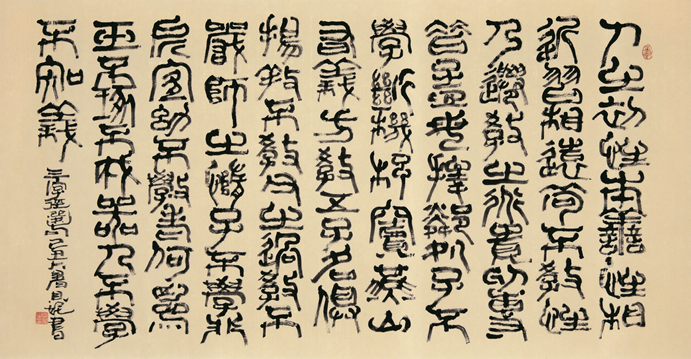 人之初性本善性相
近習相遠苟不教性
乃遷教之道貴以專
昔孟母擇鄰処子不
學斷機杼竇燕山
有義方教五子名俱
揚養不教父之過教不
嚴師之惰子不學非
所宜幼不學老何為
玉不琢不成器人不學
不知義
三字經選句己丑大暑書